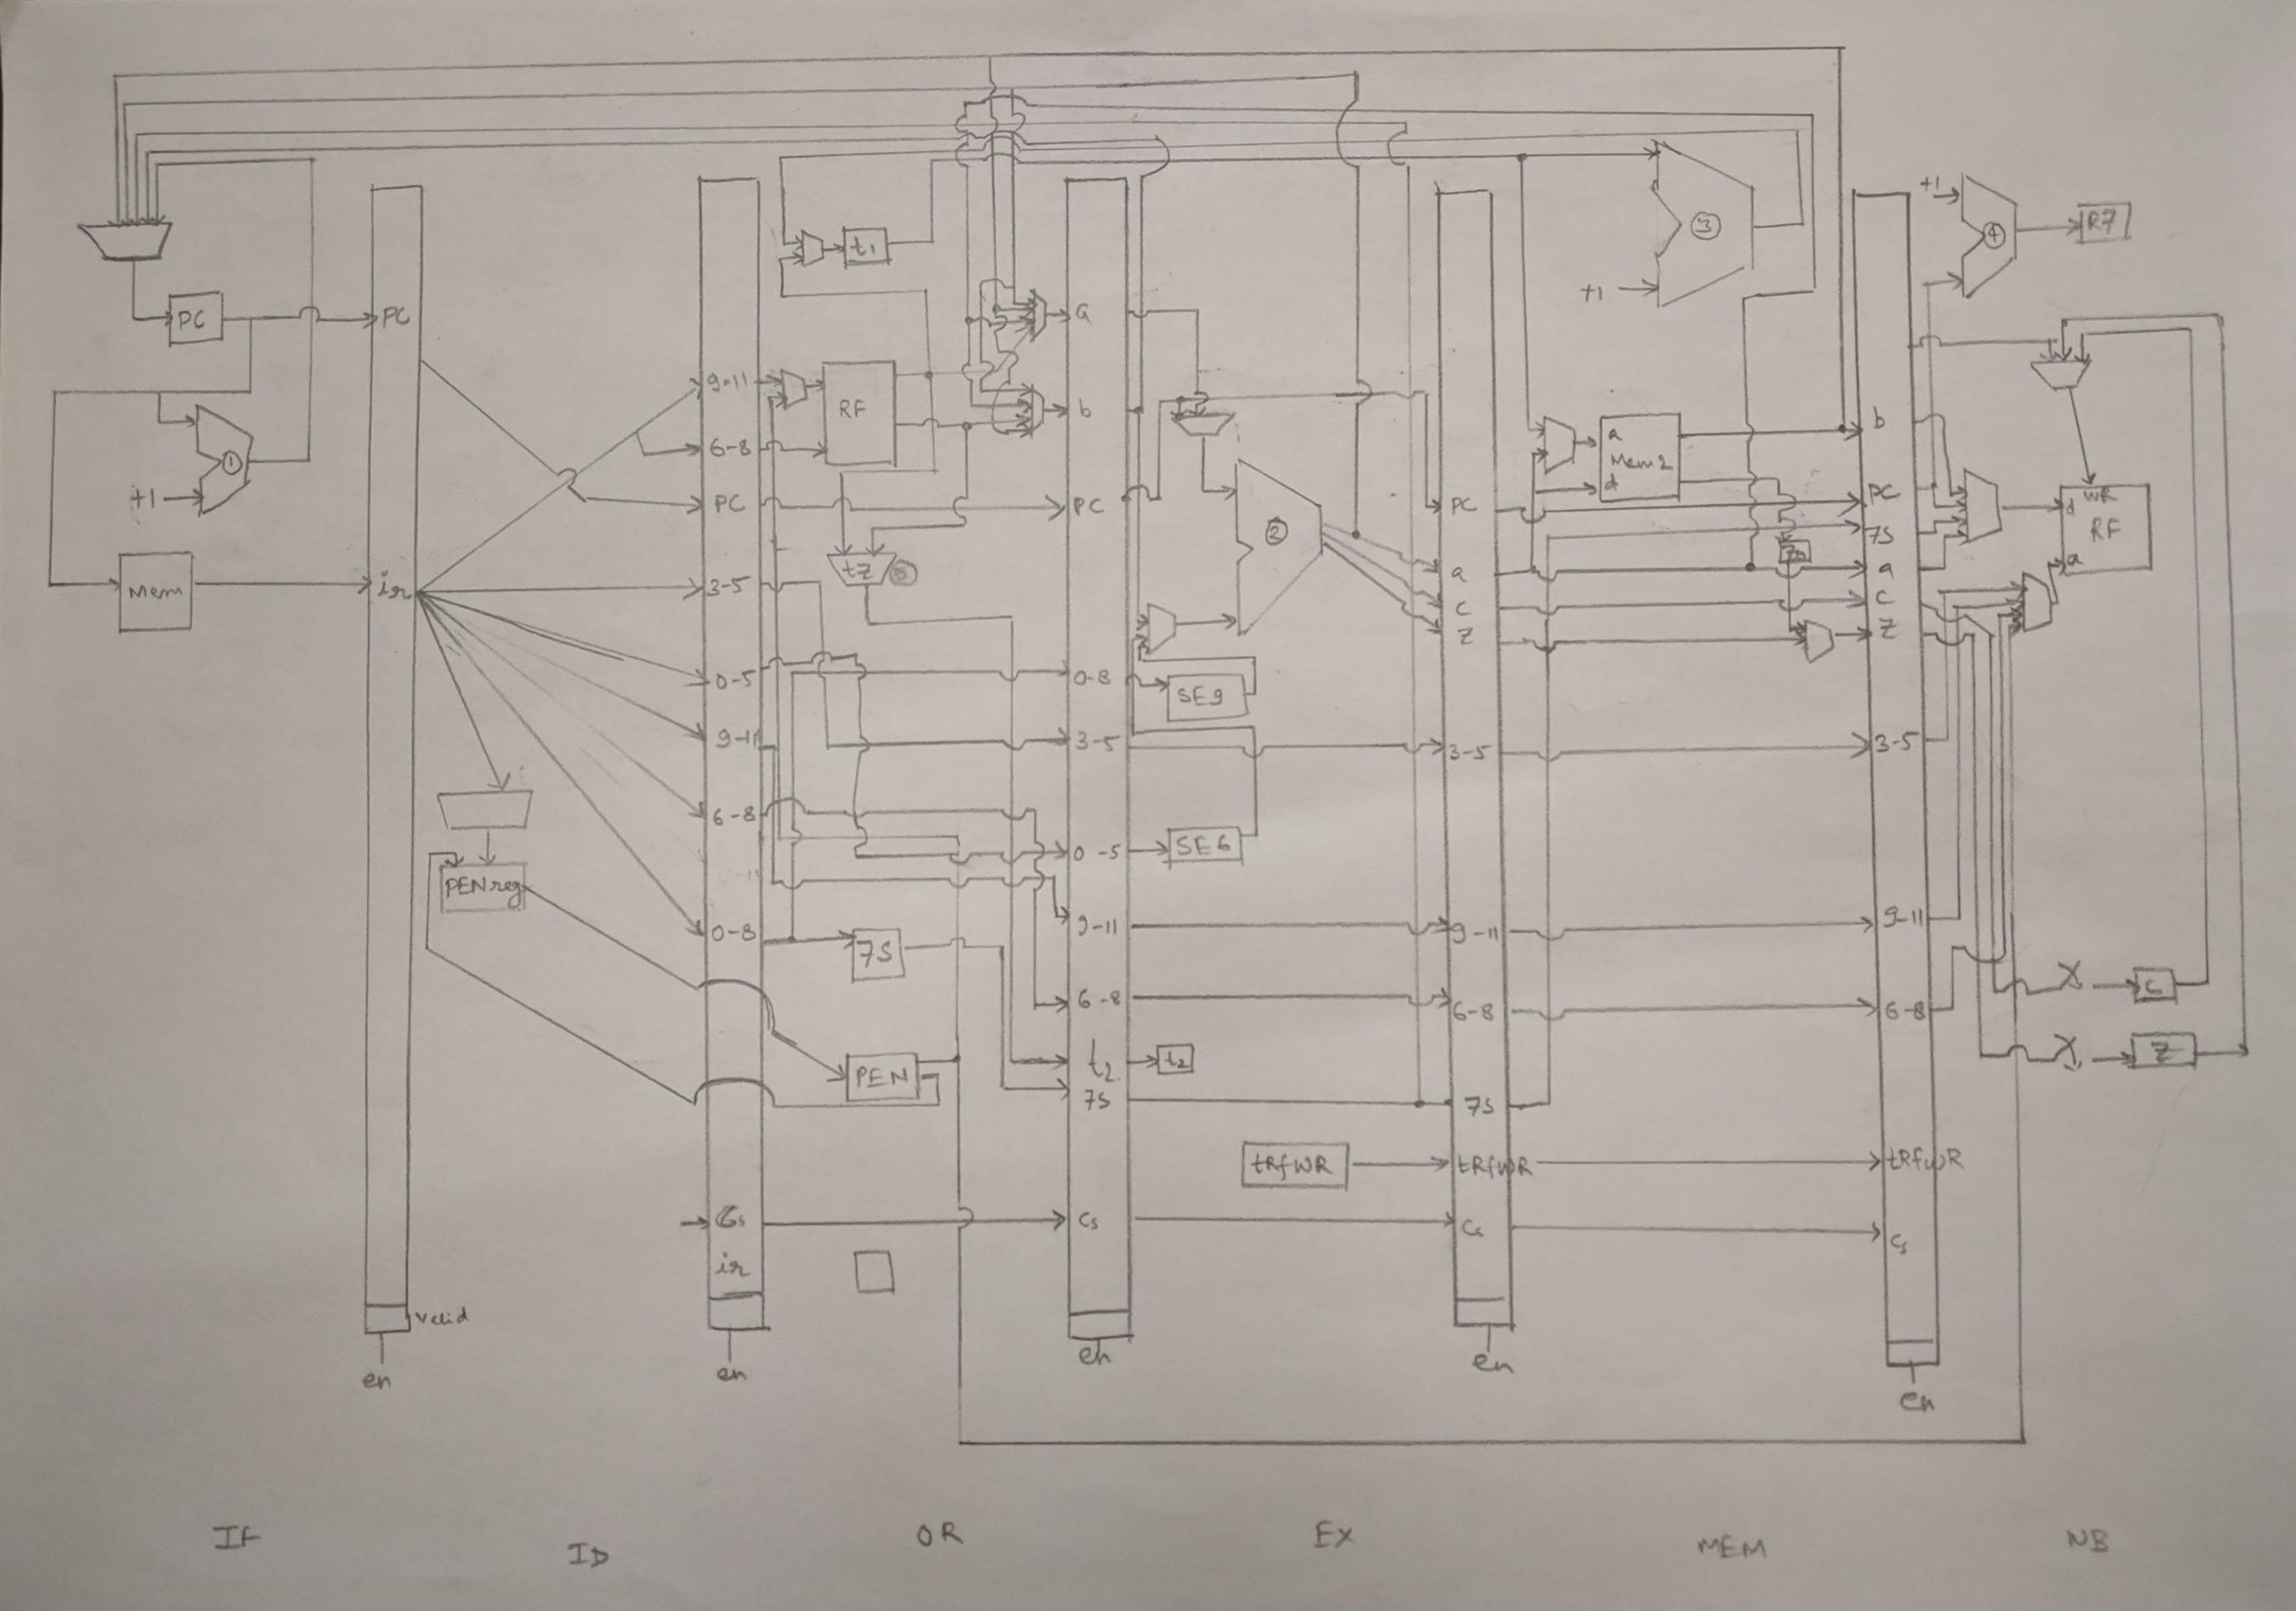 PC
+1
①
Mem
PC
ir
valid
en
PENreg
9-11
6-8
PC
3-5
0-5
9-11
6-8
11
0-8
Cs
ir
en
t1
RF
tz
7S
PEN
a
b
PC
0-8
3-5
0-5
9-11
6-8
t2
7S
Cs
en
②
SE9
SE6
t2
tRfWR
PC
a
c
Z
3-5
9-11
6-8
7S
tRfWR
Cs
en
③
+1
a
Mem2
d
b
PC
7S
a
c
Z
3-5
9-11
6-8
tRfWR
Cs
en
+1
④
R7
WR
d
RF
a
C
Z
IF
ID
OR
EX
MEM